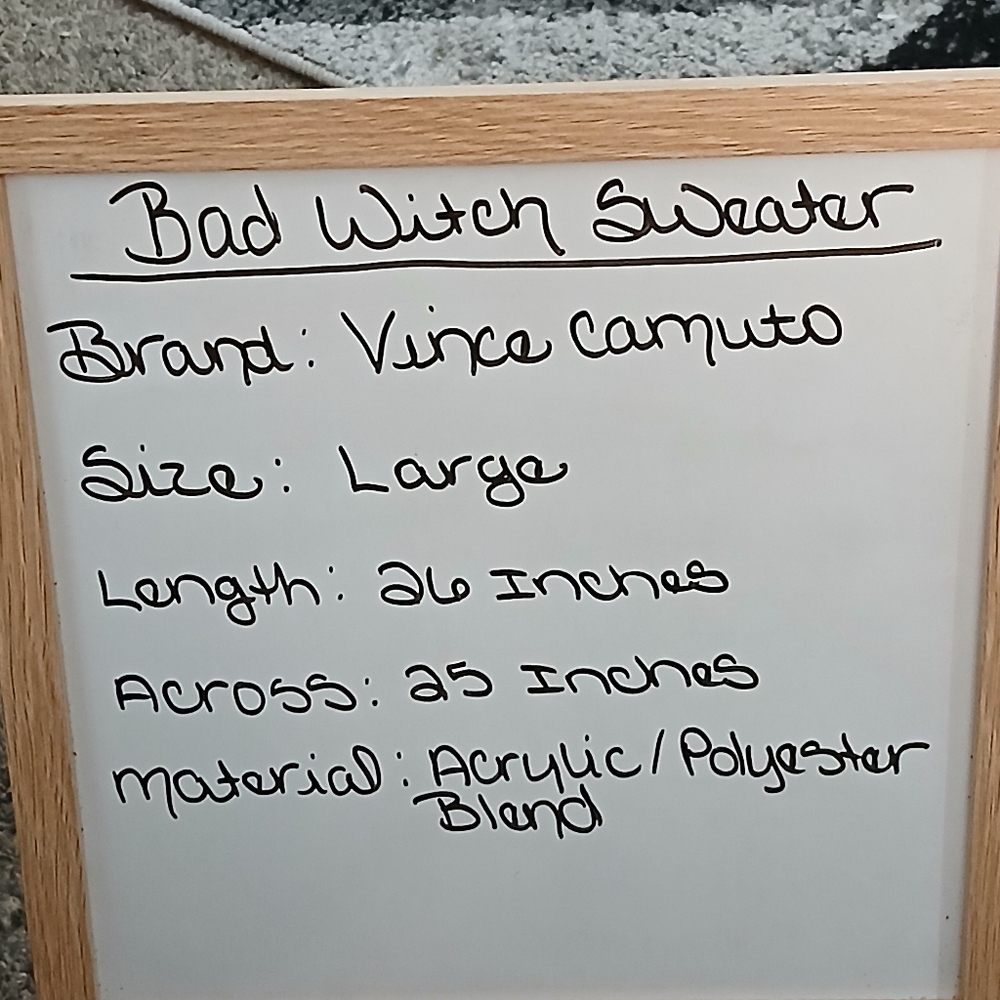 Bad Witch Sweater
Brand: Vince Camuto
Size: Large
Length: 26 Inches
Across: 25 Inches
Material: Acrylic/Polyester
Blend